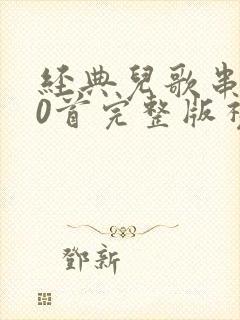 經典兒歌串
0首完整版
鄧新